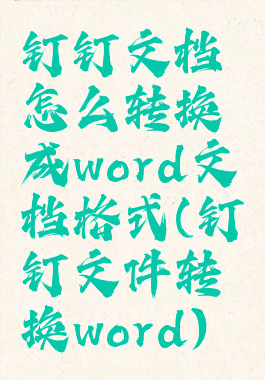 钉钉文档
怎么转换
成word文
档格式(钉
钉文件转
换word)